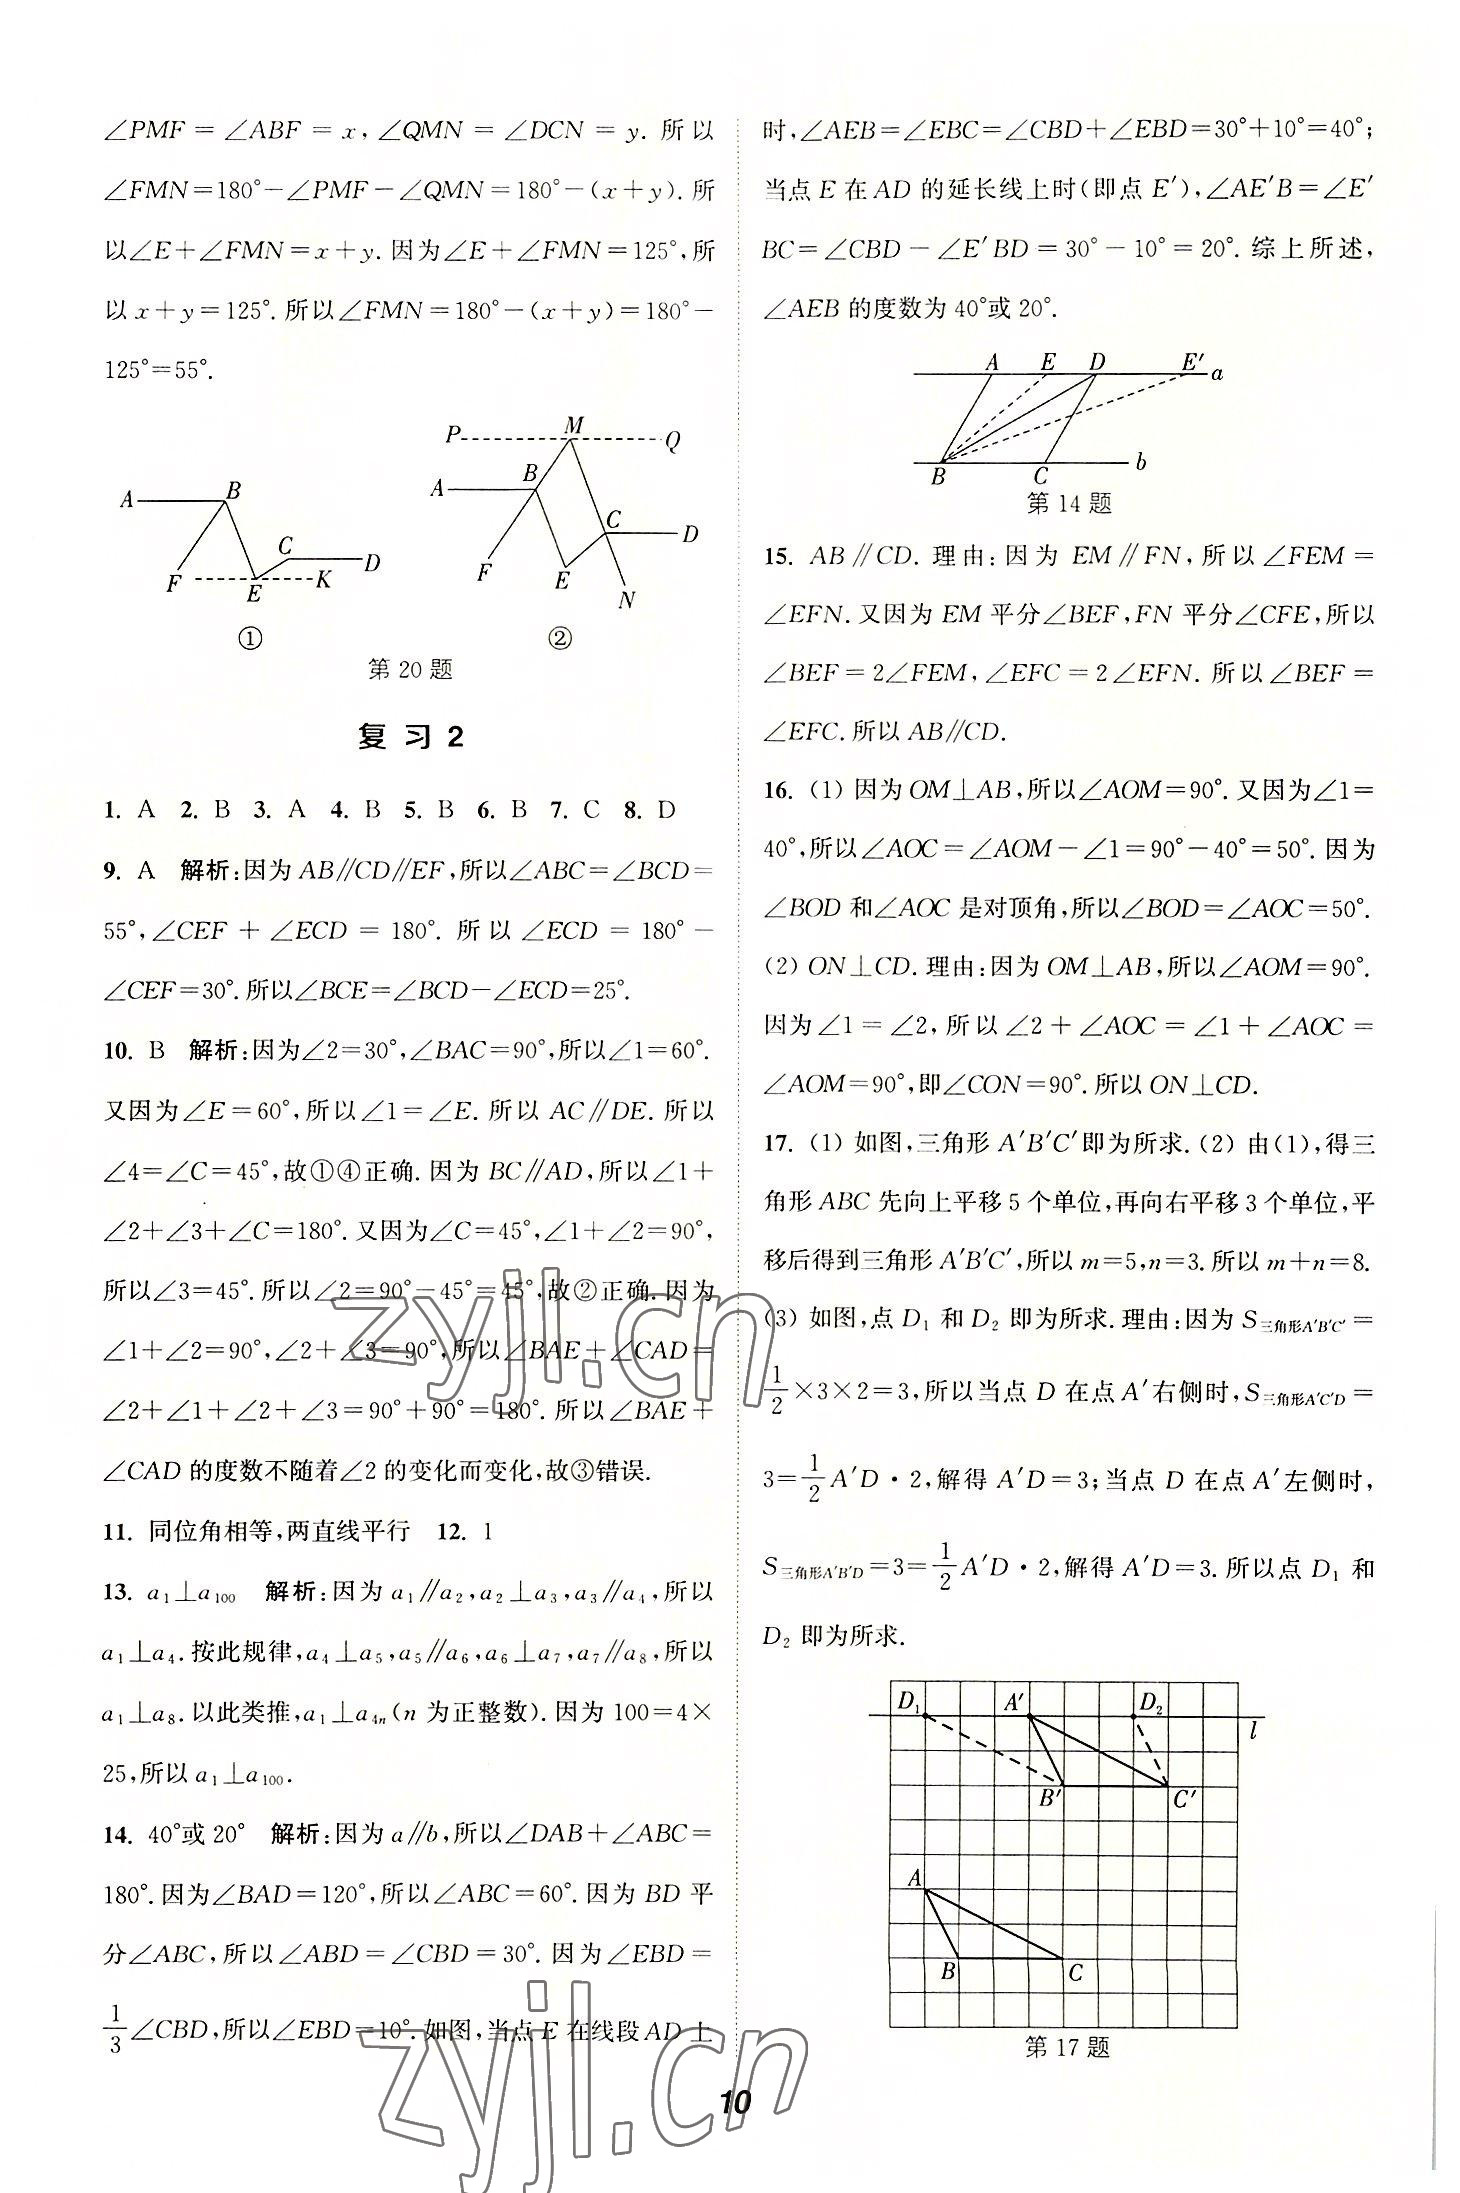 ∠PMF = ∠ABF = x, ∠QMN = ∠DCN = y. 所以
∠FMN=180°-∠PMF-∠QMN=180°-(x+y). 所
以∠E+∠FMN=x+y. 因为∠E+∠FMN=125°,所
以 x+y=125°. 所以∠FMN=180°-(x+y)=180°-
125°=55°.
A B C D E F K
①
P M Q A B C D F E N
②
第 20 题
复 习 2
1. A 2. B 3. A 4. B 5. B 6. B 7. C 8. D
9. A 解析:因为 AB∥CD∥EF,所以∠ABC=∠BCD=
55°,∠CEF + ∠ECD = 180°. 所以 ∠ECD = 180° -
∠CEF=30°. 所以∠BCE=∠BCD-∠ECD=25°.
10. B 解析:因为∠2=30°,∠BAC=90°,所以∠1=60°.
又因为∠E=60°,所以∠1=∠E. 所以 AC∥DE. 所以
∠4=∠C=45°,故①④正确. 因为 BC∥AD,所以∠1+
∠2+∠3+∠C=180°. 又因为∠C=45°,∠1+∠2=90°,
所以∠3=45°. 所以∠2=90°-45°=45°,故②正确. 因为
∠1+∠2=90°,∠2+∠3=90°,所以∠BAE+∠CAD=
∠2+∠1+∠2+∠3=90°+90°=180°. 所以∠BAE+
∠CAD 的度数不随着∠2 的变化而变化,故③错误.
11. 同位角相等,两直线平行 12. 1
13. a₁⊥a₁₀₀ 解析:因为 a₁∥a₂,a₂⊥a₃,a₃∥a₄,所以
a₁⊥a₄. 按此规律,a₄⊥a₅,a₅∥a₆,a₆⊥a₇,a₇∥a₈,所以
a₁⊥a₈. 以此类推,a₁⊥a₄ₙ(n 为正整数). 因为 100=4×
25,所以 a₁⊥a₁₀₀.
14. 40°或 20° 解析:因为 a∥b,所以∠DAB+∠ABC=
180°. 因为∠BAD=120°,所以∠ABC=60°. 因为 BD 平
分∠ABC,所以∠ABD=∠CBD=30°. 因为∠EBD=
1/3∠CBD,所以∠EBD=10°. 如图,当点 E 在线段 AD 上
时,∠AEB=∠EBC=∠CBD+∠EBD=30°+10°=40°;
当点 E 在 AD 的延长线上时(即点 E′),∠AE′B=∠E′
BC=∠CBD-∠E′BD=30°-10°=20°. 综上所述,
∠AEB 的度数为 40°或 20°.
A E D E′ a
B C b
第 14 题
15. AB∥CD. 理由:因为 EM∥FN,所以∠FEM=
∠EFN. 又因为 EM 平分∠BEF,FN 平分∠CFE,所以
∠BEF=2∠FEM,∠EFC=2∠EFN. 所以∠BEF=
∠EFC. 所以 AB∥CD.
16. (1) 因为 OM⊥AB,所以∠AOM=90°. 又因为∠1=
40°,所以∠AOC=∠AOM-∠1=90°-40°=50°. 因为
∠BOD 和∠AOC 是对顶角,所以∠BOD=∠AOC=50°.
(2) ON⊥CD. 理由:因为 OM⊥AB,所以∠AOM=90°.
因为∠1=∠2,所以∠2+∠AOC=∠1+∠AOC=
∠AOM=90°,即∠CON=90°. 所以 ON⊥CD.
17. (1) 如图,三角形 A′B′C′即为所求. (2) 由(1),得三
角形 ABC 先向上平移 5 个单位,再向右平移 3 个单位,平
移后得到三角形 A′B′C′,所以 m=5,n=3. 所以 m+n=8.
(3) 如图,点 D₁ 和 D₂ 即为所求. 理由:因为 S三角形A′B′C′=
1/2×3×2=3,所以当点 D 在点 A′右侧时,S三角形A′C′D=
3=1/2A′D·2,解得 A′D=3;当点 D 在点 A′左侧时,
S三角形A′B′D=3=1/2A′D·2,解得 A′D=3. 所以点 D₁ 和
D₂ 即为所求.
D₁ A′ D₂ l
B′ C′
A
B C
第 17 题
10
zyjl.cn
zyjl.cn